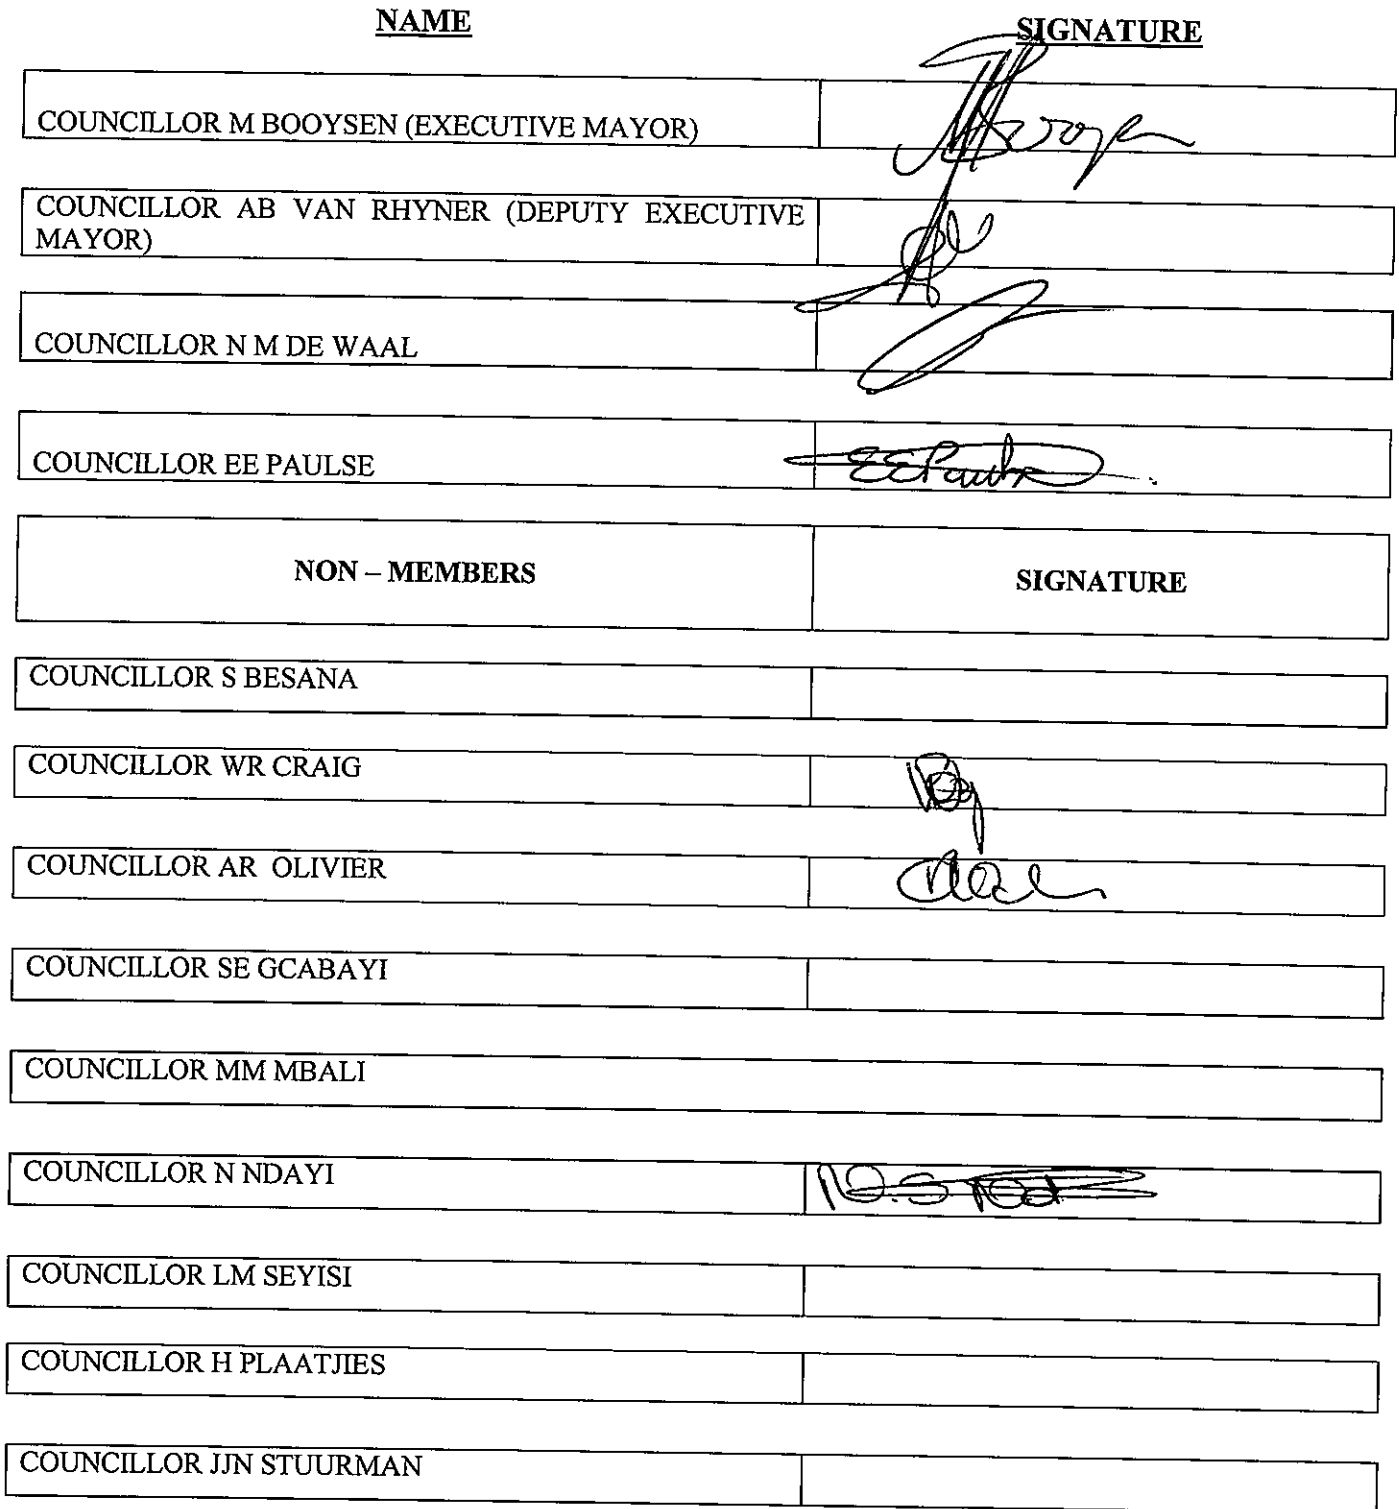 NAME SIGNATURE
COUNCILLOR M BOOYSEN (EXECUTIVE MAYOR)
COUNCILLOR AB VAN RHYNER (DEPUTY EXECUTIVE
MAYOR)
COUNCILLOR N M DE WAAL
COUNCILLOR EE PAULSE EEPaulse
NON – MEMBERS SIGNATURE
COUNCILLOR S BESANA
COUNCILLOR WR CRAIG
COUNCILLOR AR OLIVIER
COUNCILLOR SE GCABAYI
COUNCILLOR MM MBALI
COUNCILLOR N NDAYI
COUNCILLOR LM SEYISI
COUNCILLOR H PLAATJIES
COUNCILLOR JJN STUURMAN